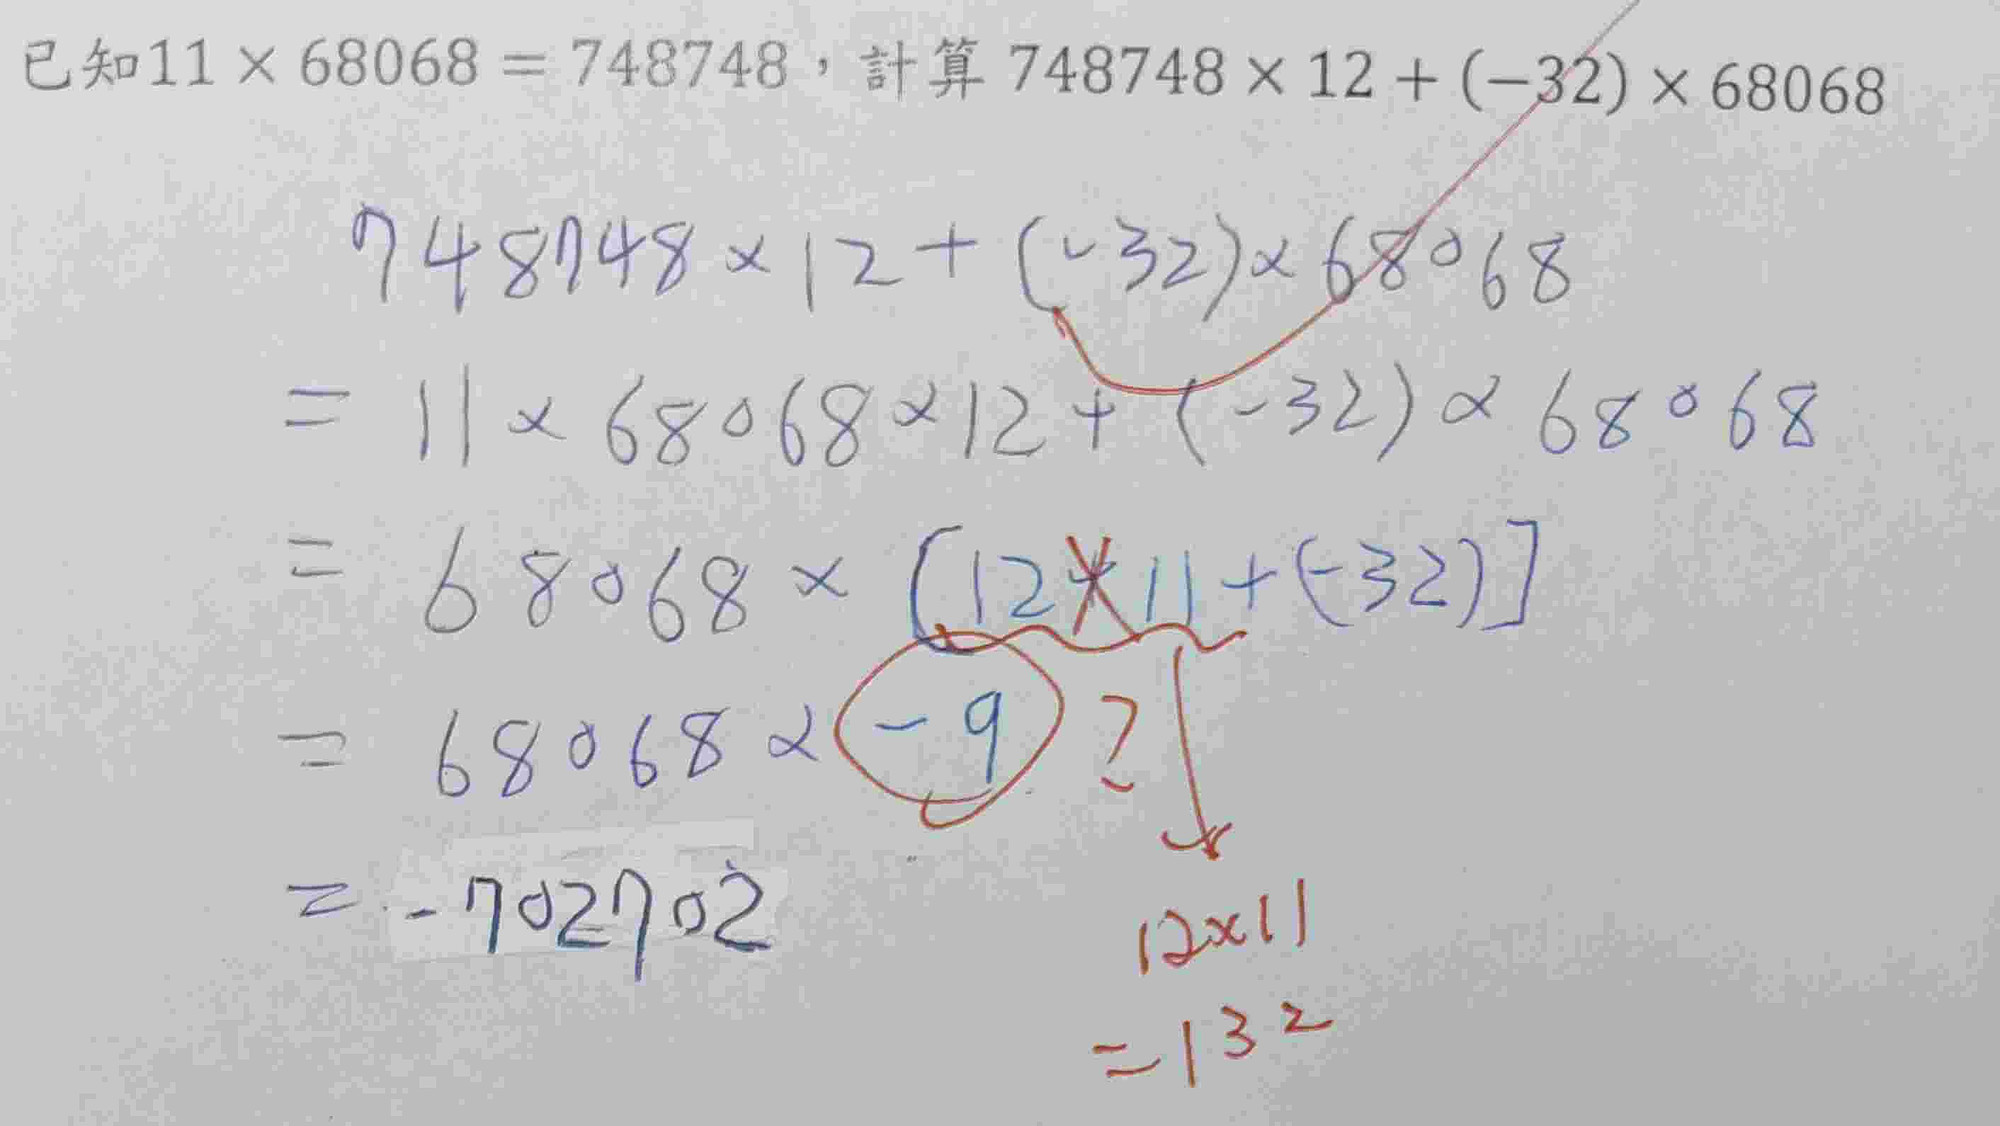 已知11 × 68068 = 748748，計算 748748 × 12 + (−32) × 68068
748748 × 12 + (-32) × 68068
= 11 × 68068 × 12 + (-32) × 68068
= 68068 × [12 × 11 + (-32)]
= 68068 × -9 ?
= -702702
12×11
=132